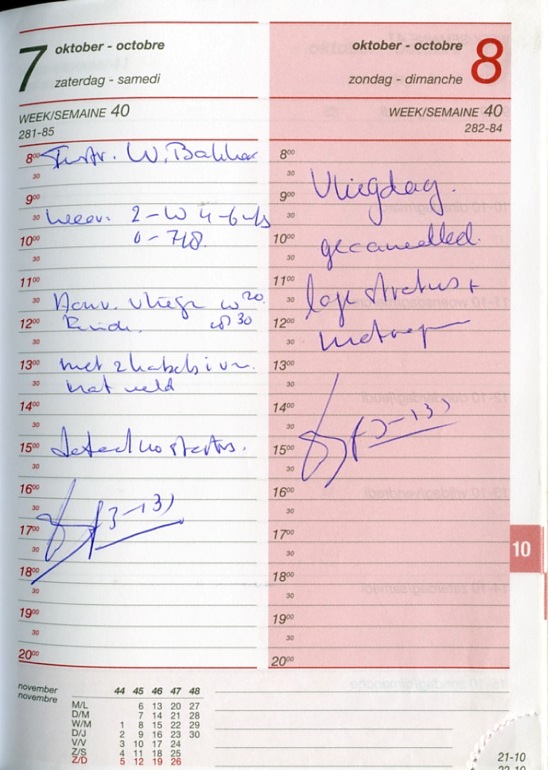 7
oktober - octobre
zaterdag - samedi
WEEK/SEMAINE 40
281-85
8⁰⁰ Instr. W. Bakker
30
9⁰⁰
30 weer. 2-W 4-6
10⁰⁰ 0-7/8
30
11⁰⁰
30 Aanv. vliegn
12⁰⁰ Einde. 30
30
13⁰⁰ met 2 kabels i.v.m.
30 nat veld
14⁰⁰
30
15⁰⁰ starts.
30
16⁰⁰
30 (3-13)
17⁰⁰
30
18⁰⁰
30
19⁰⁰
30
20⁰⁰
oktober - octobre
8
zondag - dimanche
WEEK/SEMAINE 40
282-84
8⁰⁰
30
9⁰⁰ Vliegdag.
30
10⁰⁰ gecancelled.
30
11⁰⁰ lage stratus +
30
12⁰⁰ motregen
30
13⁰⁰
30
14⁰⁰ (3-13)
30
15⁰⁰
30
16⁰⁰
30
17⁰⁰
30
18⁰⁰
30
19⁰⁰
30
20⁰⁰
10
november
novembre
44 45 46 47 48
M/L 6 13 20 27
D/M 7 14 21 28
W/M 1 8 15 22 29
D/J 2 9 16 23 30
V/V 3 10 17 24
Z/S 4 11 18 25
Z/D 5 12 19 26
21-10